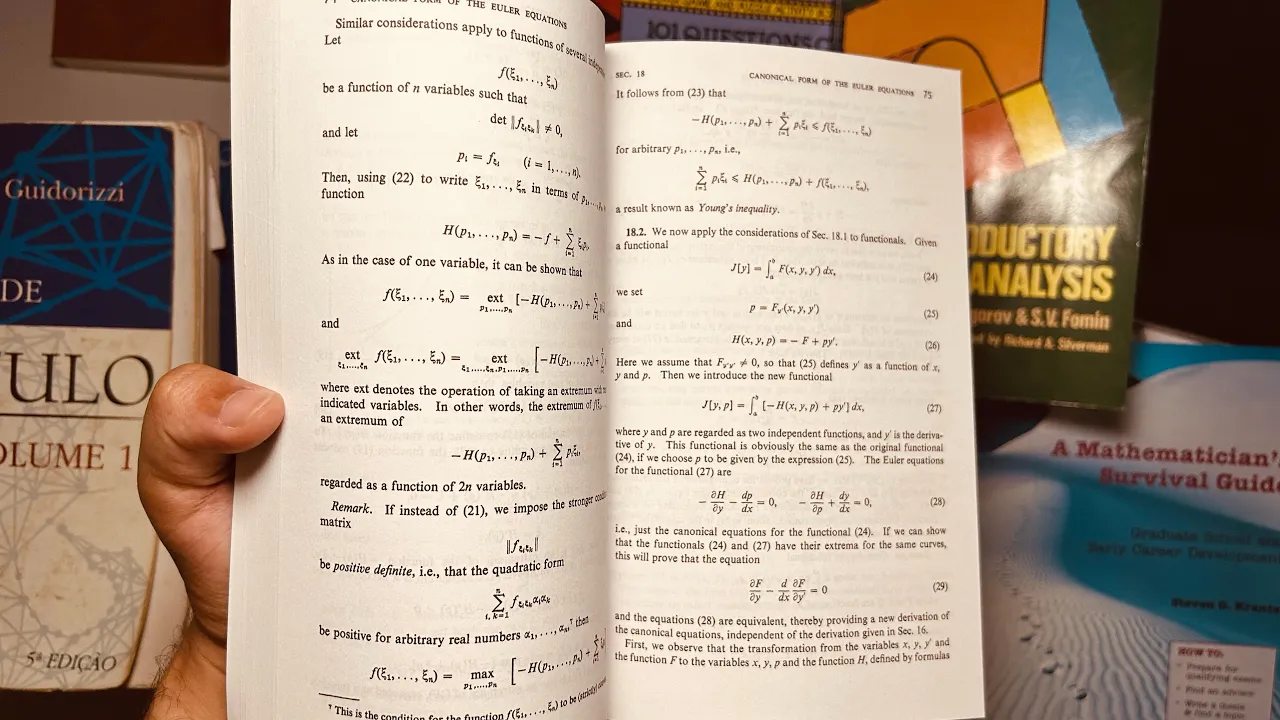 CANONICAL FORM OF THE EULER EQUATIONS
Similar considerations apply to functions of several
Let
f(ξ₁, . . . , ξₙ)
be a function of n variables such that
det ‖f_{ξᵢξₖ}‖ ≠ 0,
and let
pᵢ = f_{ξᵢ}    (i = 1, . . . , n).
Then, using (22) to write ξ₁, . . . , ξₙ in terms of p₁, . . . , pₙ
function
H(p₁, . . . , pₙ) = −f + ∑ᵢ₌₁ⁿ ξᵢpᵢ,
As in the case of one variable, it can be shown that
f(ξ₁, . . . , ξₙ) = ext_{p₁,...,pₙ} [−H(p₁, . . . , pₙ) + ∑ᵢ₌₁ⁿ
and
ext_{ξ₁,...,ξₙ} f(ξ₁, . . . , ξₙ) = ext_{ξ₁,...,ξₙ,p₁,...,pₙ} [−H(p₁, . . . , pₙ) +
where ext denotes the operation of taking an extremum with
indicated variables. In other words, the extremum of
an extremum of
−H(p₁, . . . , pₙ) + ∑ᵢ₌₁ⁿ pᵢξᵢ,
regarded as a function of 2n variables.
Remark. If instead of (21), we impose the stronger
matrix
‖f_{ξᵢξₖ}‖
be positive definite, i.e., that the quadratic form
∑_{i, k=1}ⁿ f_{ξᵢξₖ}αᵢαₖ
be positive for arbitrary real numbers α₁, . . . , αₙ,† then
f(ξ₁, . . . , ξₙ) = max_{p₁,...,pₙ} [−H(p₁, . . . , pₙ) + ∑ᵢ₌₁ⁿ
† This is the condition for the function f(ξ₁, . . . , ξₙ) to be (strictly)
SEC. 18    CANONICAL FORM OF THE EULER EQUATIONS    75
It follows from (23) that
−H(p₁, . . . , pₙ) + ∑ᵢ₌₁ⁿ pᵢξᵢ ⩽ f(ξ₁, . . . , ξₙ)
for arbitrary p₁, . . . , pₙ, i.e.,
∑ᵢ₌₁ⁿ pᵢξᵢ ⩽ H(p₁, . . . , pₙ) + f(ξ₁, . . . , ξₙ),
a result known as Young's inequality.
18.2. We now apply the considerations of Sec. 18.1 to functionals. Given
a functional
J[y] = ∫ₐᵇ F(x, y, y′) dx,    (24)
we set
p = F_{y′}(x, y, y′)    (25)
and
H(x, y, p) = −F + py′.    (26)
Here we assume that F_{y′y′} ≠ 0, so that (25) defines y′ as a function of x,
y and p. Then we introduce the new functional
J[y, p] = ∫ₐᵇ [−H(x, y, p) + py′] dx,    (27)
where y and p are regarded as two independent functions, and y′ is the deriva-
tive of y. This functional is obviously the same as the original functional
(24), if we choose p to be given by the expression (25). The Euler equations
for the functional (27) are
−∂H/∂y − dp/dx = 0,    −∂H/∂p + dy/dx = 0,    (28)
i.e., just the canonical equations for the functional (24). If we can show
that the functionals (24) and (27) have their extrema for the same curves,
this will prove that the equation
∂F/∂y − d/dx ∂F/∂y′ = 0    (29)
and the equations (28) are equivalent, thereby providing a new derivation of
the canonical equations, independent of the derivation given in Sec. 16.
First, we observe that the transformation from the variables x, y, y′ and
the function F to the variables x, y, p and the function H, defined by formulas
Guidorizzi
DE
ULO
OLUME 1
5ª EDIÇÃO
101 QUESTIONS
ODUCTORY
ANALYSIS
& S.V. Fomin
by Richard A. Silverman
A Mathematician's
Survival Guide
Graduate School
Early Career Development
Steven G. Krantz
HOW TO:
• Prepare for
qualifying exams
• Find an advisor
• Write a thesis